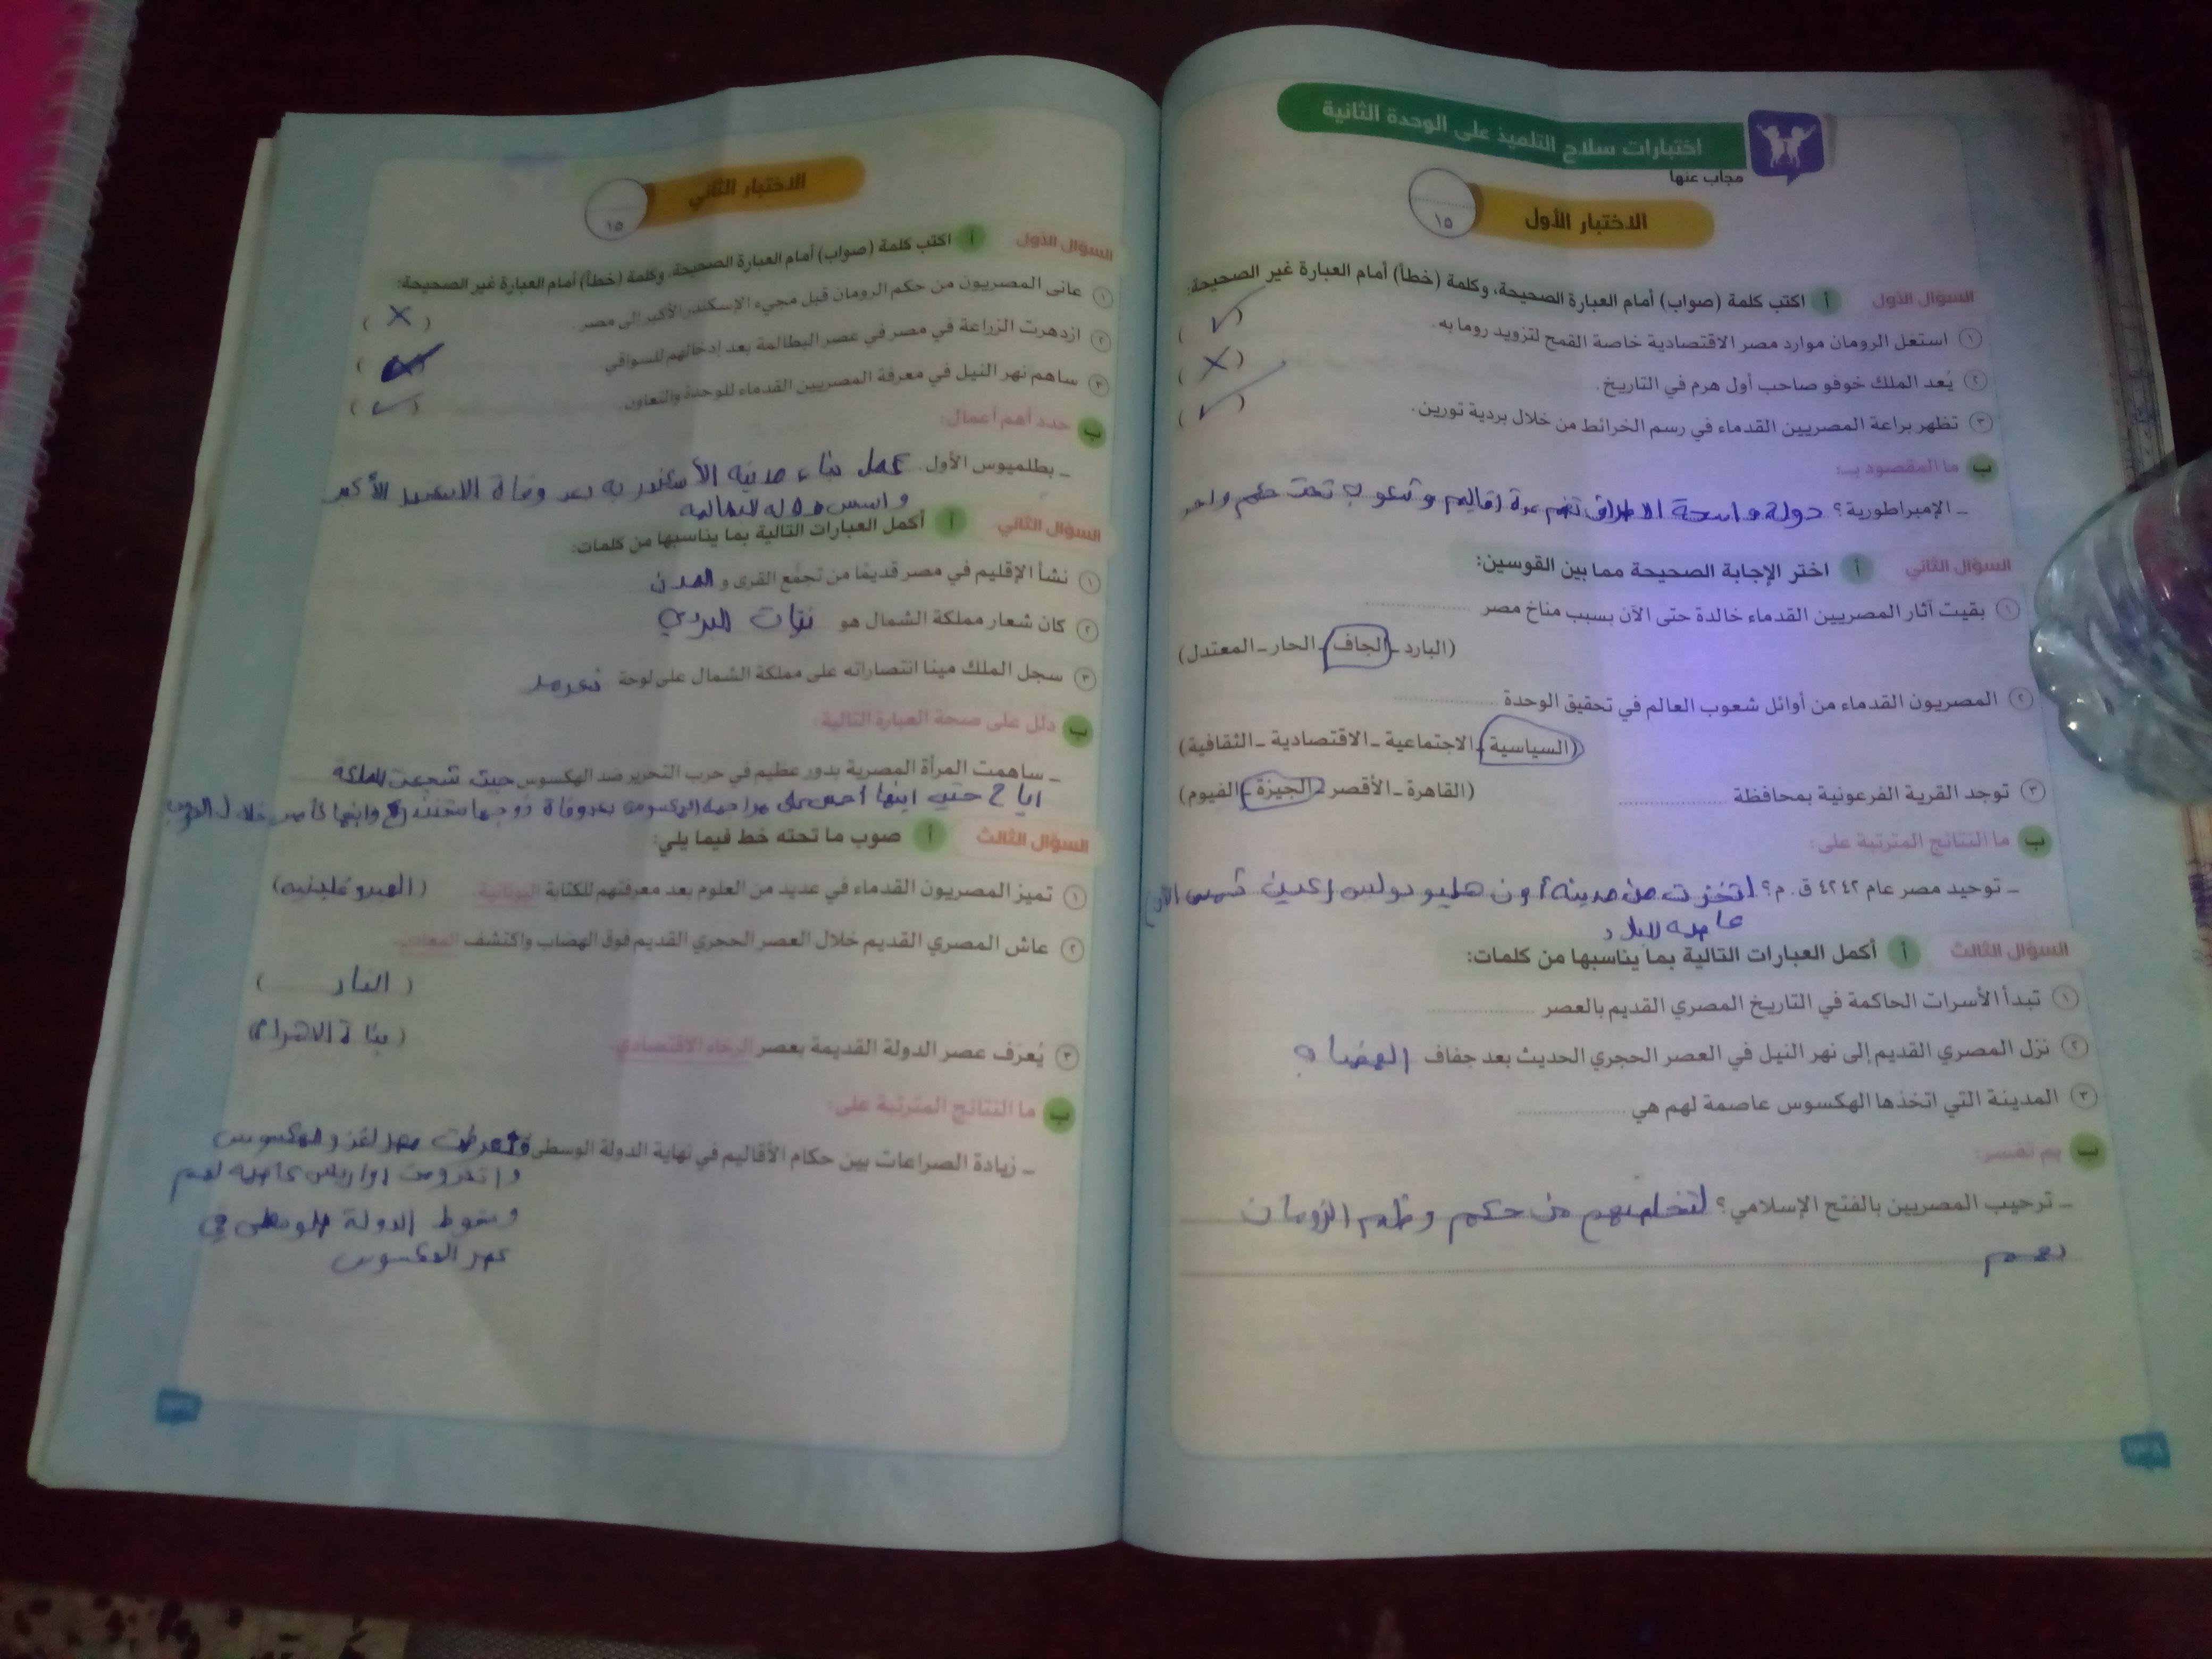 اختبارات سلاح التلميذ على الوحدة الثانية
مجاب عنها
الاختبار الأول
١٥
السؤال الأول أ اكتب كلمة (صواب) أمام العبارة الصحيحة، وكلمة (خطأ) أمام العبارة غير الصحيحة:
١ استغل الرومان موارد مصر الاقتصادية خاصة القمح لتزويد روما به. (✓)
٢ يُعد الملك خوفو صاحب أول هرم في التاريخ. (×)
٣ تظهر براعة المصريين القدماء في رسم الخرائط من خلال بردية تورين. (✓)
ب ما المقصود بـ:
ـ الإمبراطورية؟ دولة واسحة الاطراف تضم عدة اقاليم وشعوب تحت حكم واحد
السؤال الثاني أ اختر الإجابة الصحيحة مما بين القوسين:
١ بقيت آثار المصريين القدماء خالدة حتى الآن بسبب مناخ مصر
(البارد ـ الجاف ـ الحار ـ المعتدل)
٢ المصريون القدماء من أوائل شعوب العالم في تحقيق الوحدة
(السياسية ـ الاجتماعية ـ الاقتصادية ـ الثقافية)
٣ توجد القرية الفرعونية بمحافظة (القاهرة ـ الأقصر ـ الجيزة ـ الفيوم)
ب ما النتائج المترتبة على:
ـ توحيد مصر عام ٤٢٤٢ ق. م؟ اتخزت من مدينه أون هليوبولس (عين شمس الآن)
عاصمه للبلاد
السؤال الثالث أ أكمل العبارات التالية بما يناسبها من كلمات:
١ تبدأ الأسرات الحاكمة في التاريخ المصري القديم بالعصر
٢ نزل المصري القديم إلى نهر النيل في العصر الحجري الحديث بعد جفاف الهضاب
٣ المدينة التي اتخذها الهكسوس عاصمة لهم هي
ب بم تفسر:
ـ ترحيب المصريين بالفتح الإسلامي؟ لتخليصهم من حكم وظلم الرومان
لهم
الاختبار الثاني
١٥
السؤال الأول أ اكتب كلمة (صواب) أمام العبارة الصحيحة، وكلمة (خطأ) أمام العبارة غير الصحيحة:
١ عانى المصريون من حكم الرومان قبل مجيء الإسكندر الأكبر إلى مصر. (×)
٢ ازدهرت الزراعة في مصر في عصر البطالمة بعد إدخالهم للسواقي ( )
٣ ساهم نهر النيل في معرفة المصريين القدماء للوحدة والتعاون. (✓)
ب حدد أهم أعمال:
ـ بطلميوس الأول. عمل بناء مدينه الأسكندريه بعد وفاة الاسكندر الأكبر
واسس دوله البطالمه
السؤال الثاني أ أكمل العبارات التالية بما يناسبها من كلمات:
١ نشأ الإقليم في مصر قديمًا من تجمُّع القرى و المدن
٢ كان شعار مملكة الشمال هو نبات البردي
٣ سجل الملك مينا انتصاراته على مملكة الشمال على لوحة نعرمر
ب دلل على صحة العبارة التالية:
ـ ساهمت المرأة المصرية بدور عظيم في حرب التحرير ضد الهكسوس حيث شجعت الملكة
اياح حتب ابنها أحمس على مزاحمة الهكسوس بعد وفاة زوجها سقنن رع وابنها كامس خلال الحرب
السؤال الثالث أ صوب ما تحته خط فيما يلي:
١ تميز المصريون القدماء في عديد من العلوم بعد معرفتهم للكتابة اليونانية. (الهيروغليفيه)
٢ عاش المصري القديم خلال العصر الحجري القديم فوق الهضاب واكتشف المعادن.
(النار)
٣ يُعرَف عصر الدولة القديمة بعصر الرخاء الاقتصادي. (بناة الاهرام)
ب ما النتائج المترتبة على:
ـ زيادة الصراعات بين حكام الأقاليم في نهاية الدولة الوسطى؟ تعرضت مصر لغزو الهكسوس
واتخذوت اواريس عاصمه لهم
وسقوط الدولة الوسطى في
عصر الهكسوس